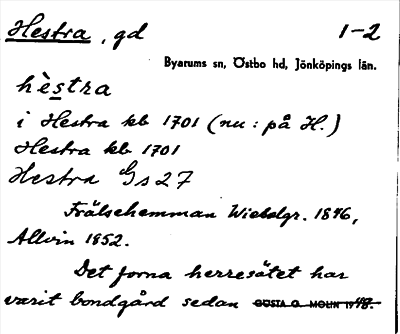 Hestra, gd 1-2
Byarums sn, Östbo hd, Jönköpings län.
hèstra
i Hestra kb 1701 (nu: på H.)
Hestra kb 1701
Hestra Gs 27
Frälsehemman Wieselgr. 1846,
Allvin 1852.
Det forna herresätet har
varit bondgård sedan GÖSTA O. MOLIN 1948.